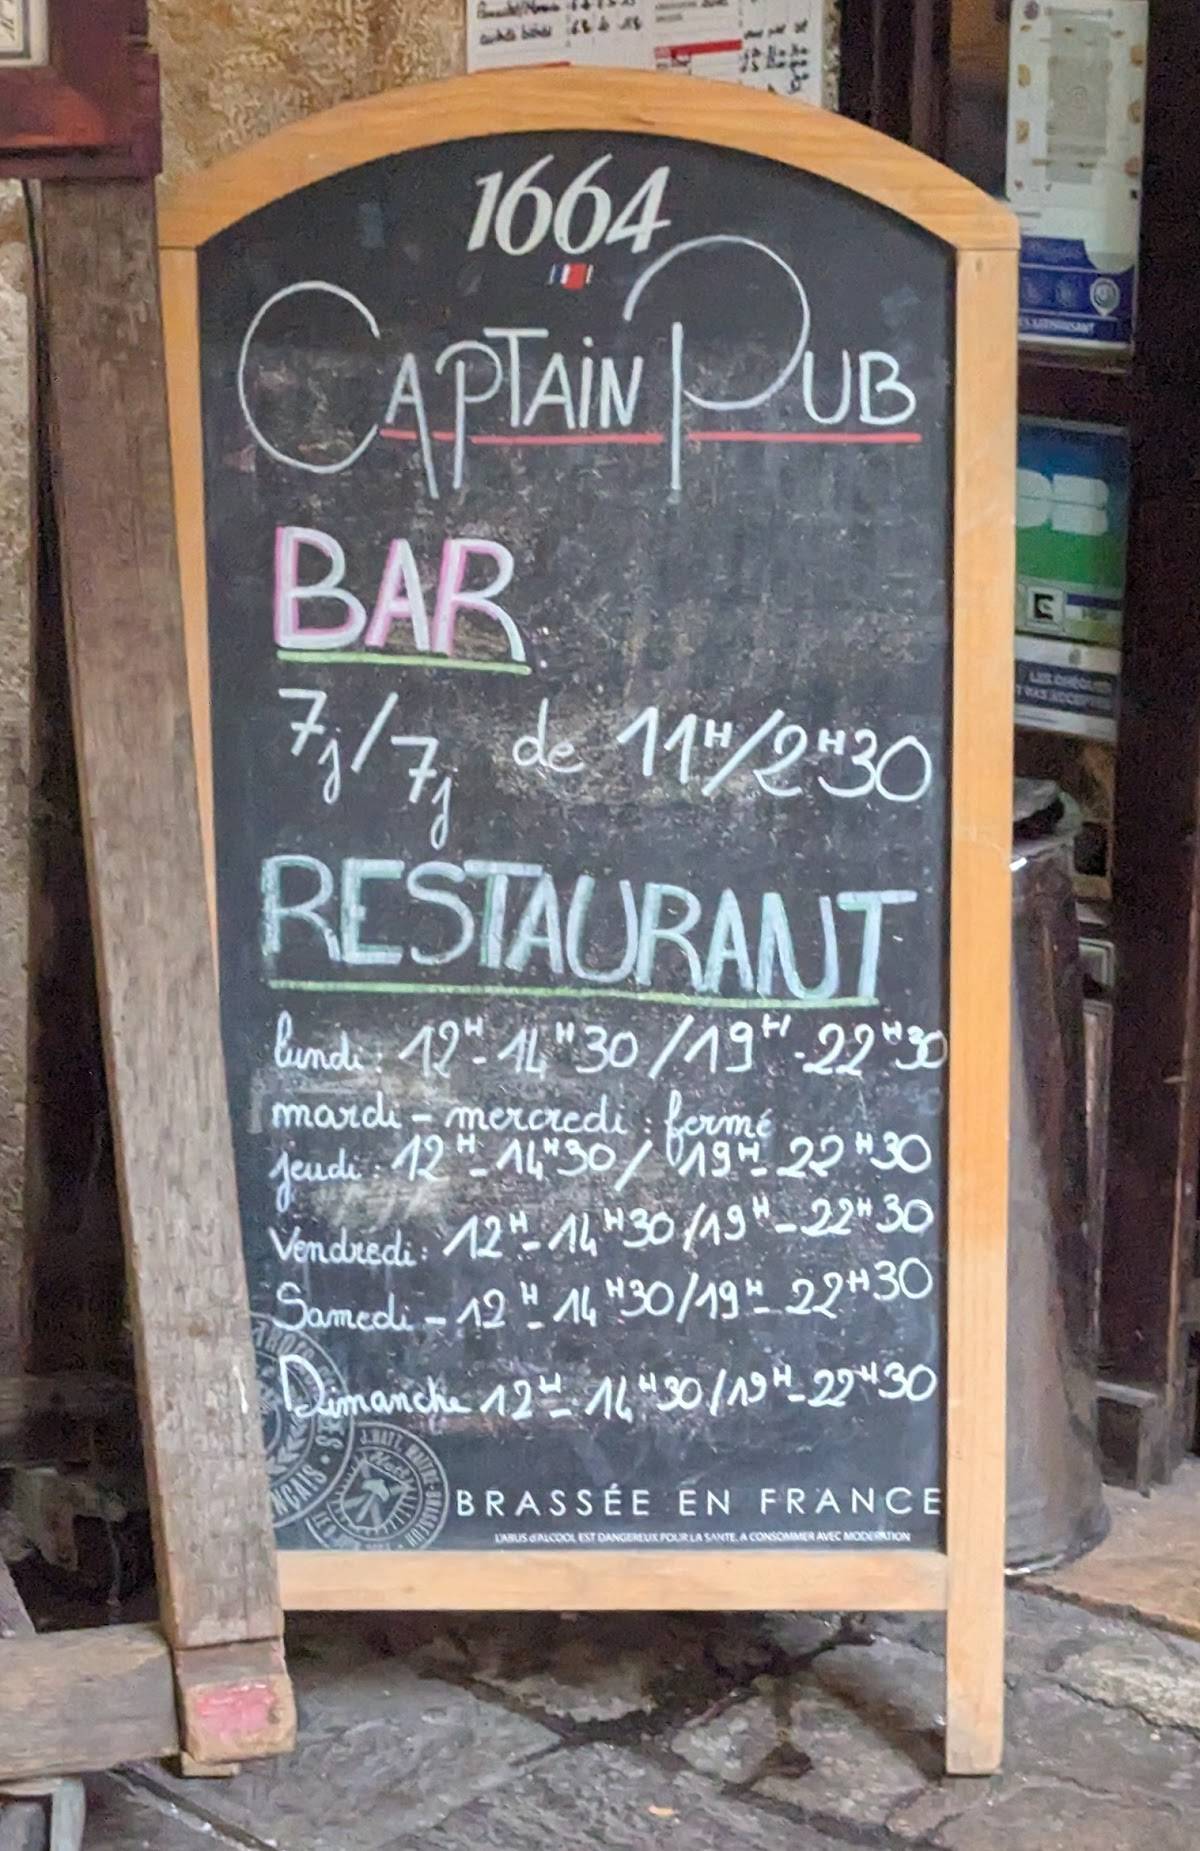 autres bières
1664
CAPTAIN PUB
BAR
7j/7j de 11H/2H30
RESTAURANT
lundi : 12H-14H30 / 19H-22H30
mardi - mercredi : fermé
jeudi : 12H-14H30 / 19H-22H30
Vendredi : 12H-14H30 / 19H-22H30
Samedi - 12H-14H30 / 19H-22H30
Dimanche 12H-14H30 / 19H-22H30
BRASSÉE EN FRANCE
L'ABUS d'ALCOOL EST DANGEREUX POUR LA SANTE. A CONSOMMER AVEC MODERATION